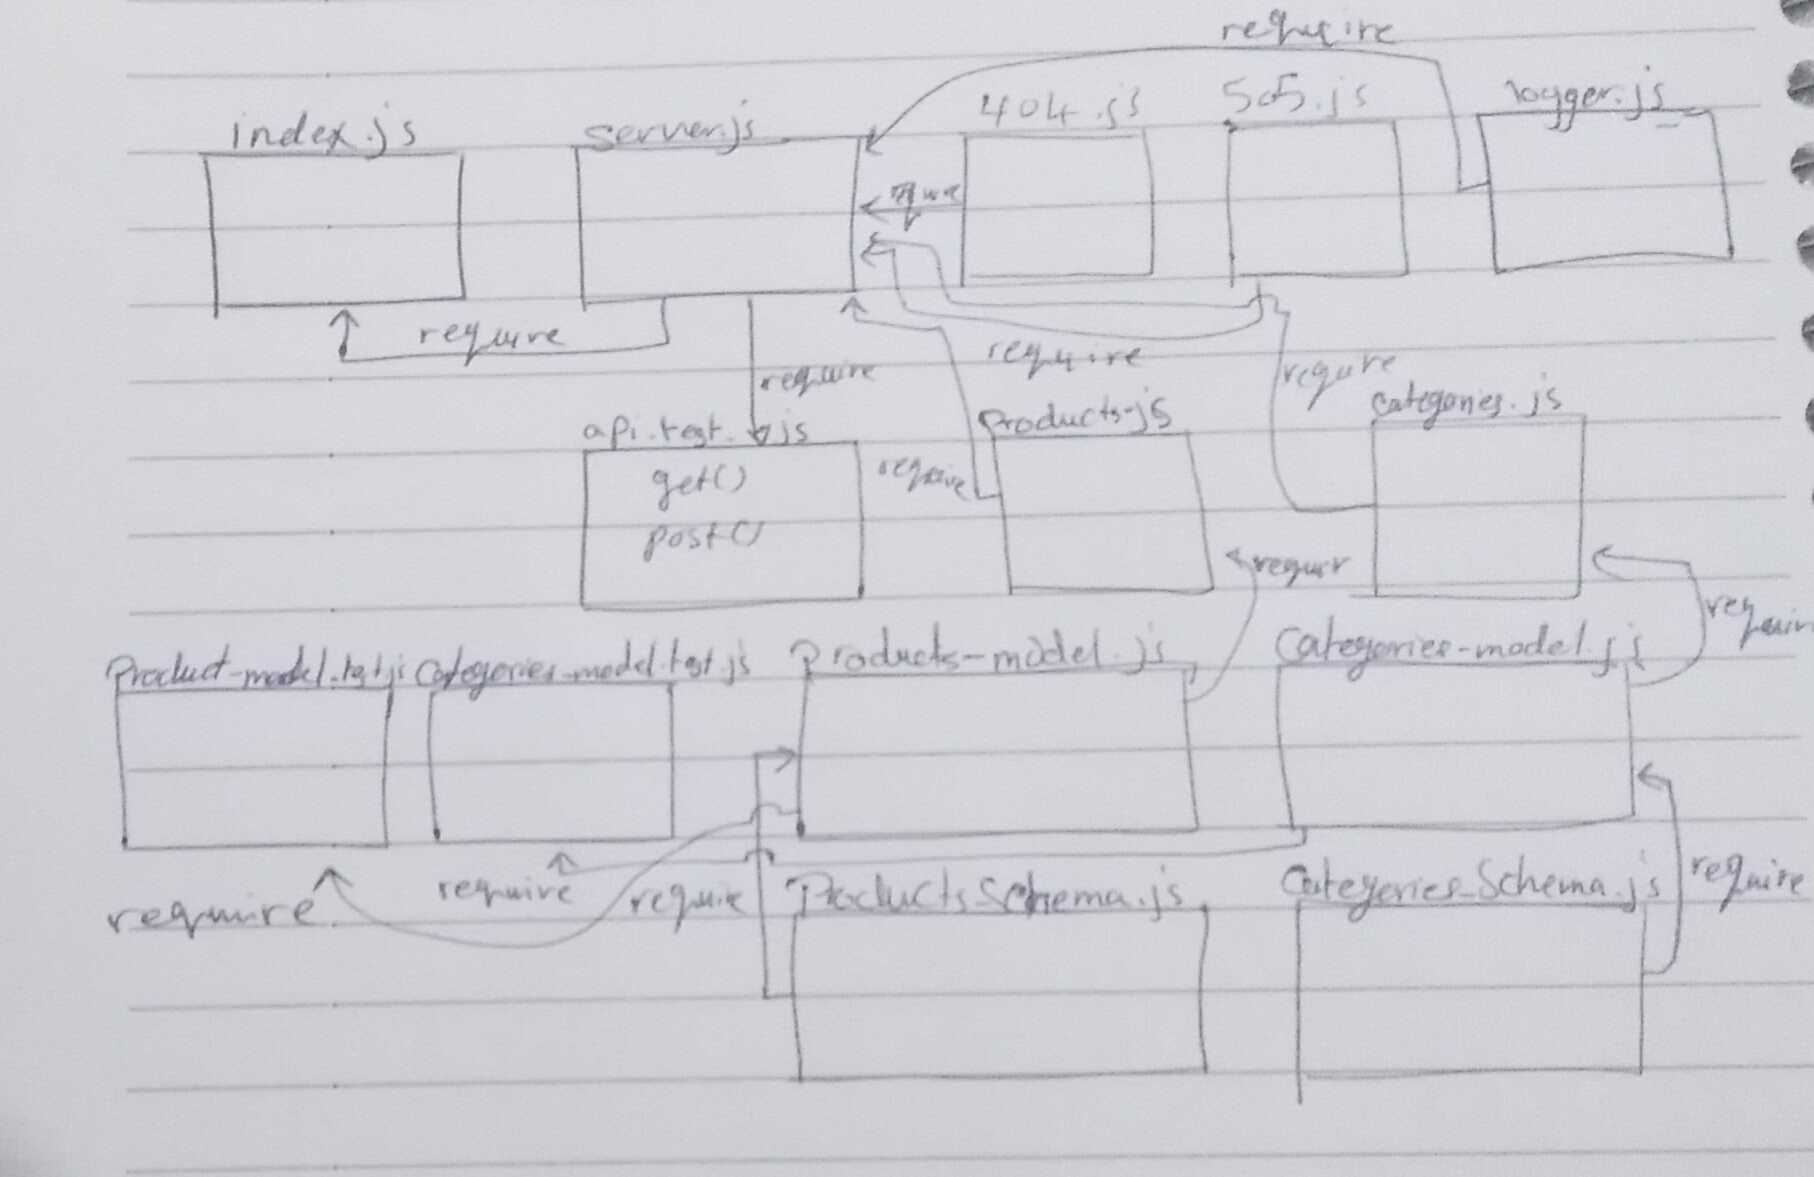 require
index.js
server.js
404.js
505.js
logger.js
require
require
require
require
require
api.test.js
products.js
categories.js
get()
post()
require
requir
require
Product-model.test.js
Categories-model.test.js
Products-model.js
Categories-model.js
require
require
require
Products Schema.js
Categories-Schema.js
require